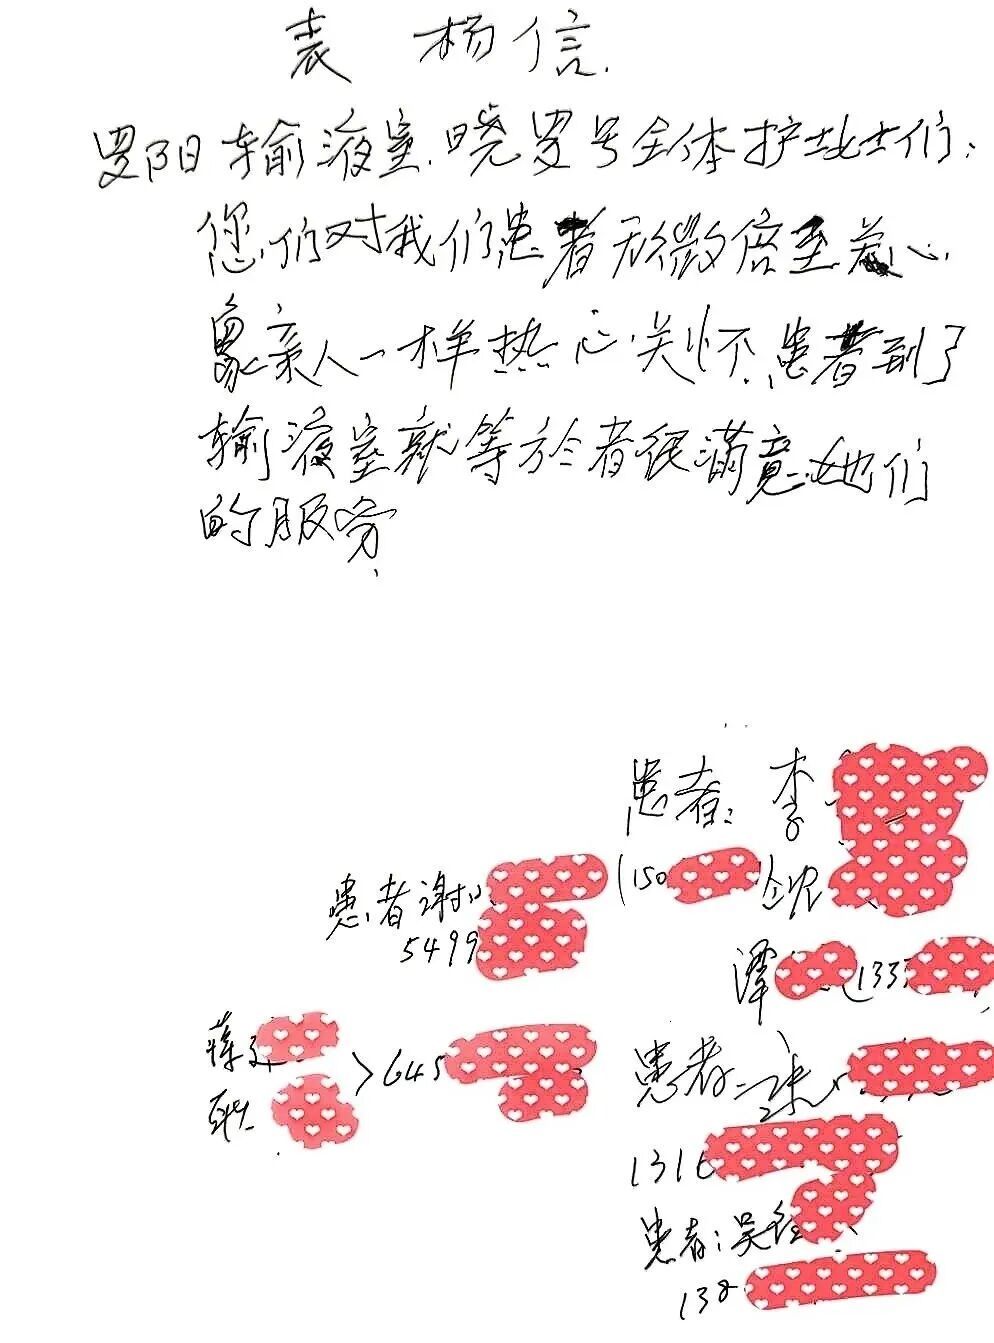 表 杨信.
罗阳输液室.晓罗号全体护士们:
您们对我们患者无微倍至关心.
象亲人一样热心.关怀.患者到了
输液室就等於者很满意.她们
的服务.
患者: 李
(150
患者谢
5499
谭 (133
蒋
耿
>645
患者
1316
患者:吴
138